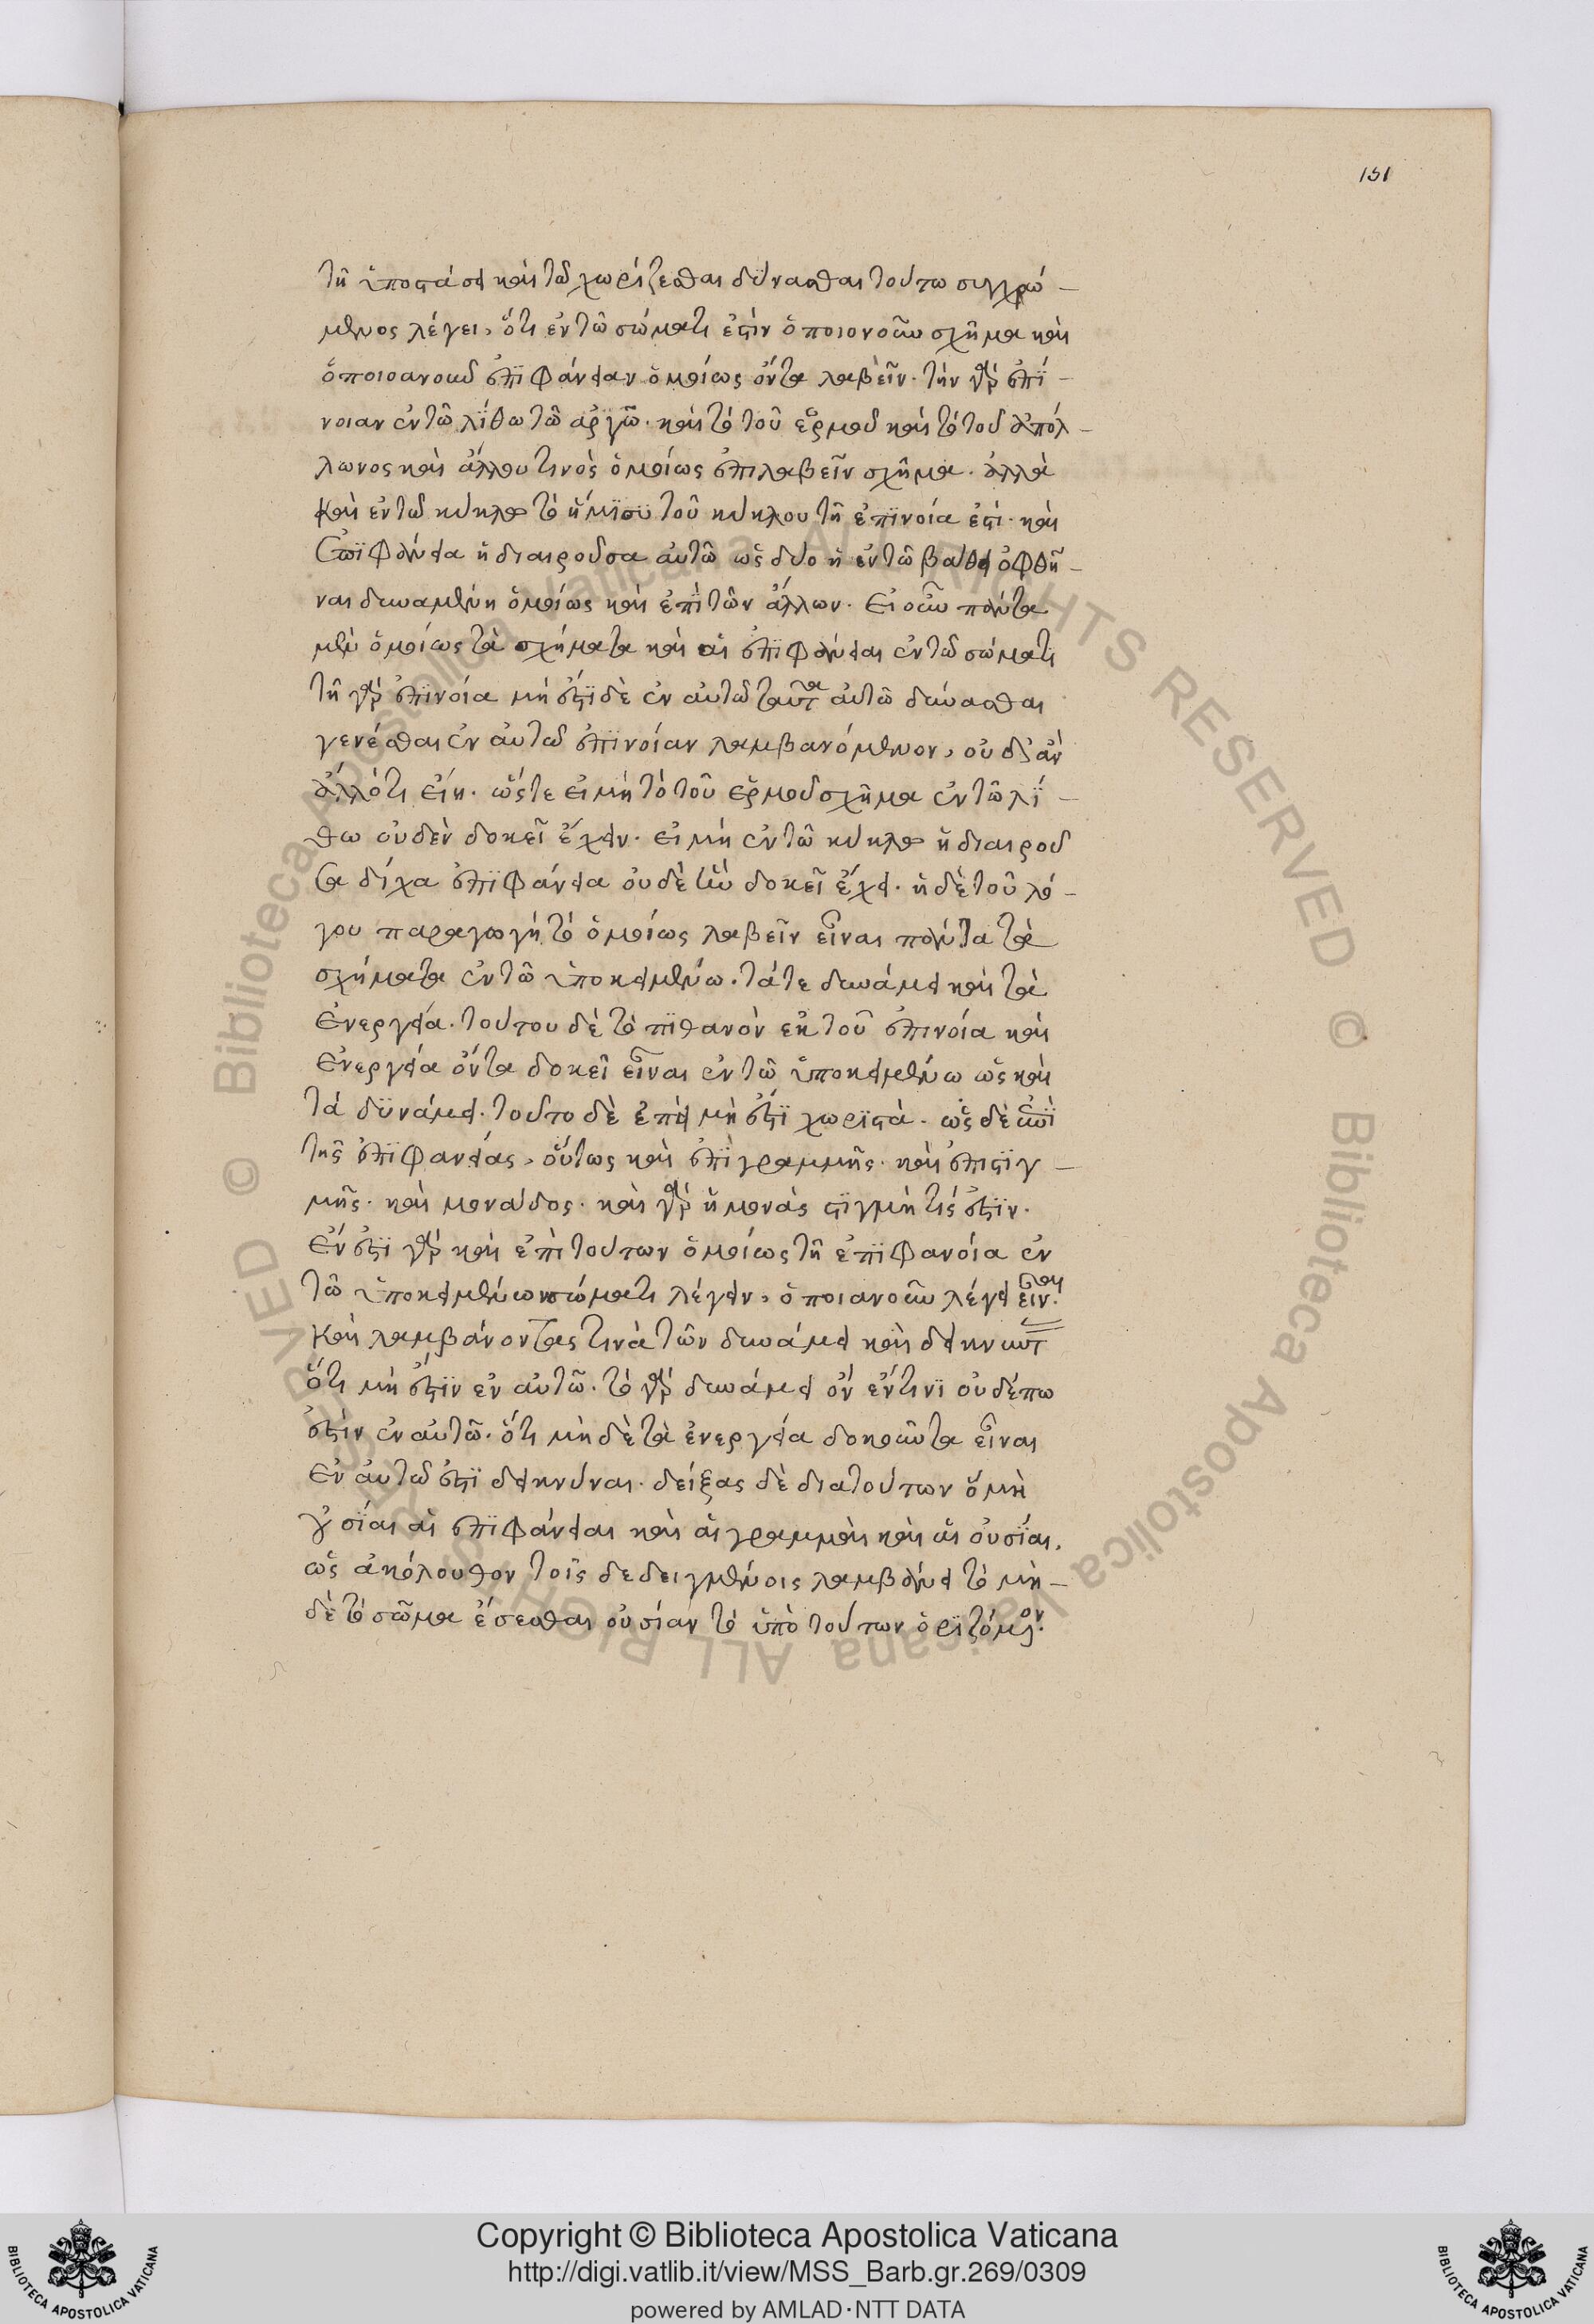 151
τῆ ὑποστάσει καὶ τῶ χωρίζεσθαι δύνασθαι τούτω συγχρώ-
μενος λέγει, ὅτι ἐν τῶ σώματι ἐστὶν ὁποιονοῦν σχῆμα καὶ
ὁποιοανοῦν ἐπιφάνειαν ὁμοίως ὄντα λαβεῖν. τὴν γὰρ ἐπί-
νοιαν ἐν τῶ λίθω τῶ ἀργῶ. καὶ τὸ τοῦ ἑρμοῦ καὶ τὸ τοῦ ἀπόλ-
λωνος καὶ ἄλλου τινὸς ὁμοίως ἐπιλαβεῖν σχῆμα. ἀλλὰ
καὶ ἐν τῶ κύκλω τὸ ἥμισυ τοῦ κύκλου τῆ ἐπινοία ἐστὶ. καὶ
ἐπιφάνεια ἡ διαιροῦσα αὐτὸ ὡς δύο ἢ ἐν τῶ βάθει ὀφθῆ-
ναι δυναμένη ὁμοίως καὶ ἐπὶ τῶν ἄλλων. εἰ οὖν πάντα
μὲν ὁμοίως τὰ σχήματα καὶ αἱ ἐπιφάνειαι ἐν τῶ σώματι
τῆ γὰρ ἐπινοία μὴ ἔστι δὲ ἐν αὐτῶ ταῦτα αὐτῶ δύνασθαι
γενέσθαι ἐν αὐτῶ ἐπινοίαν λαμβανόμενον, οὐδ' ἂν
ἄλλό τι εἴη. ὥστε εἰ μὴ τὸ τοῦ ἑρμοῦ σχῆμα ἐν τῶ λί-
θω οὐδὲν δοκεῖ ἔχειν. εἰ μὴ ἐν τῶ κύκλω ἡ διαιροῦ
σα δίχα ἐπιφάνεια οὐδὲ νῦν δοκεῖ ἔχει. ἡ δὲ τοῦ λό-
γου παραγωγὴ τὸ ὁμοίως λαβεῖν εἶναι πάντα τὰ
σχήματα ἐν τῶ ὑποκειμένω. τά τε δυνάμει καὶ τὰ
ἐνεργεία. τούτου δὲ τὸ πιθανὸν ἐκ τοῦ ἐπινοία καὶ
ἐνεργεία ὄντα δοκεῖ εἶναι ἐν τῶ ὑποκειμένω ὡς καὶ
τὰ δυνάμει. τοῦτο δὲ ἐπεὶ μὴ ἔστι χωριστὰ. ὡς δὲ ἐπὶ
τῆς ἐπιφανείας, οὕτως καὶ ἐπὶ γραμμῆς. καὶ ἐπὶ στιγ-
μῆς. καὶ μονάδος. καὶ γὰρ ἡ μονὰς στιγμή τίς ἐστιν.
ἔνεστι γὰρ καὶ ἐπὶ τούτων ὁμοίως τῆ ἐπιφανοία ἐν
τῶ ὑποκειμένω σώματι λέγειν, ὁποιανοῦν λέγει εἶναι.
καὶ λαμβάνοντας τινὰ τῶν δυνάμει καὶ δεικνυστ
ὅτι μὴ ἔστιν ἐν αὐτῶ. τὸ γὰρ δυνάμει ὂν ἔν τινι οὐδέπω
ἐστὶν ἐν αὐτῶ. ὅτι μὴ δὲ τὰ ἐνεργεία δοκοῦντα εἶναι
ἐν αὐτῶ ἔστι δεικνύναι. δείξας δὲ διὰ τούτων ὃ μὴ
οὐσίαι αἱ ἐπιφάνειαι καὶ αἱ γραμμαὶ καὶ αἱ οὐσίαι,
ὡς ἀκόλουθον τοῖς δεδειγμένοις λαμβάνει τὸ μη-
δὲ τὸ σῶμα ἔσεσθαι οὐσίαν τὸ ὑπὸ τούτων ὁριζόμενον.
© Biblioteca Apostolica Vaticana ALL RIGHTS RESERVED
Copyright © Biblioteca Apostolica Vaticana
http://digi.vatlib.it/view/MSS_Barb.gr.269/0309
powered by AMLAD·NTT DATA
BIBLIOTECA APOSTOLICA VATICANA
BIBLIOTECA APOSTOLICA VATICANA